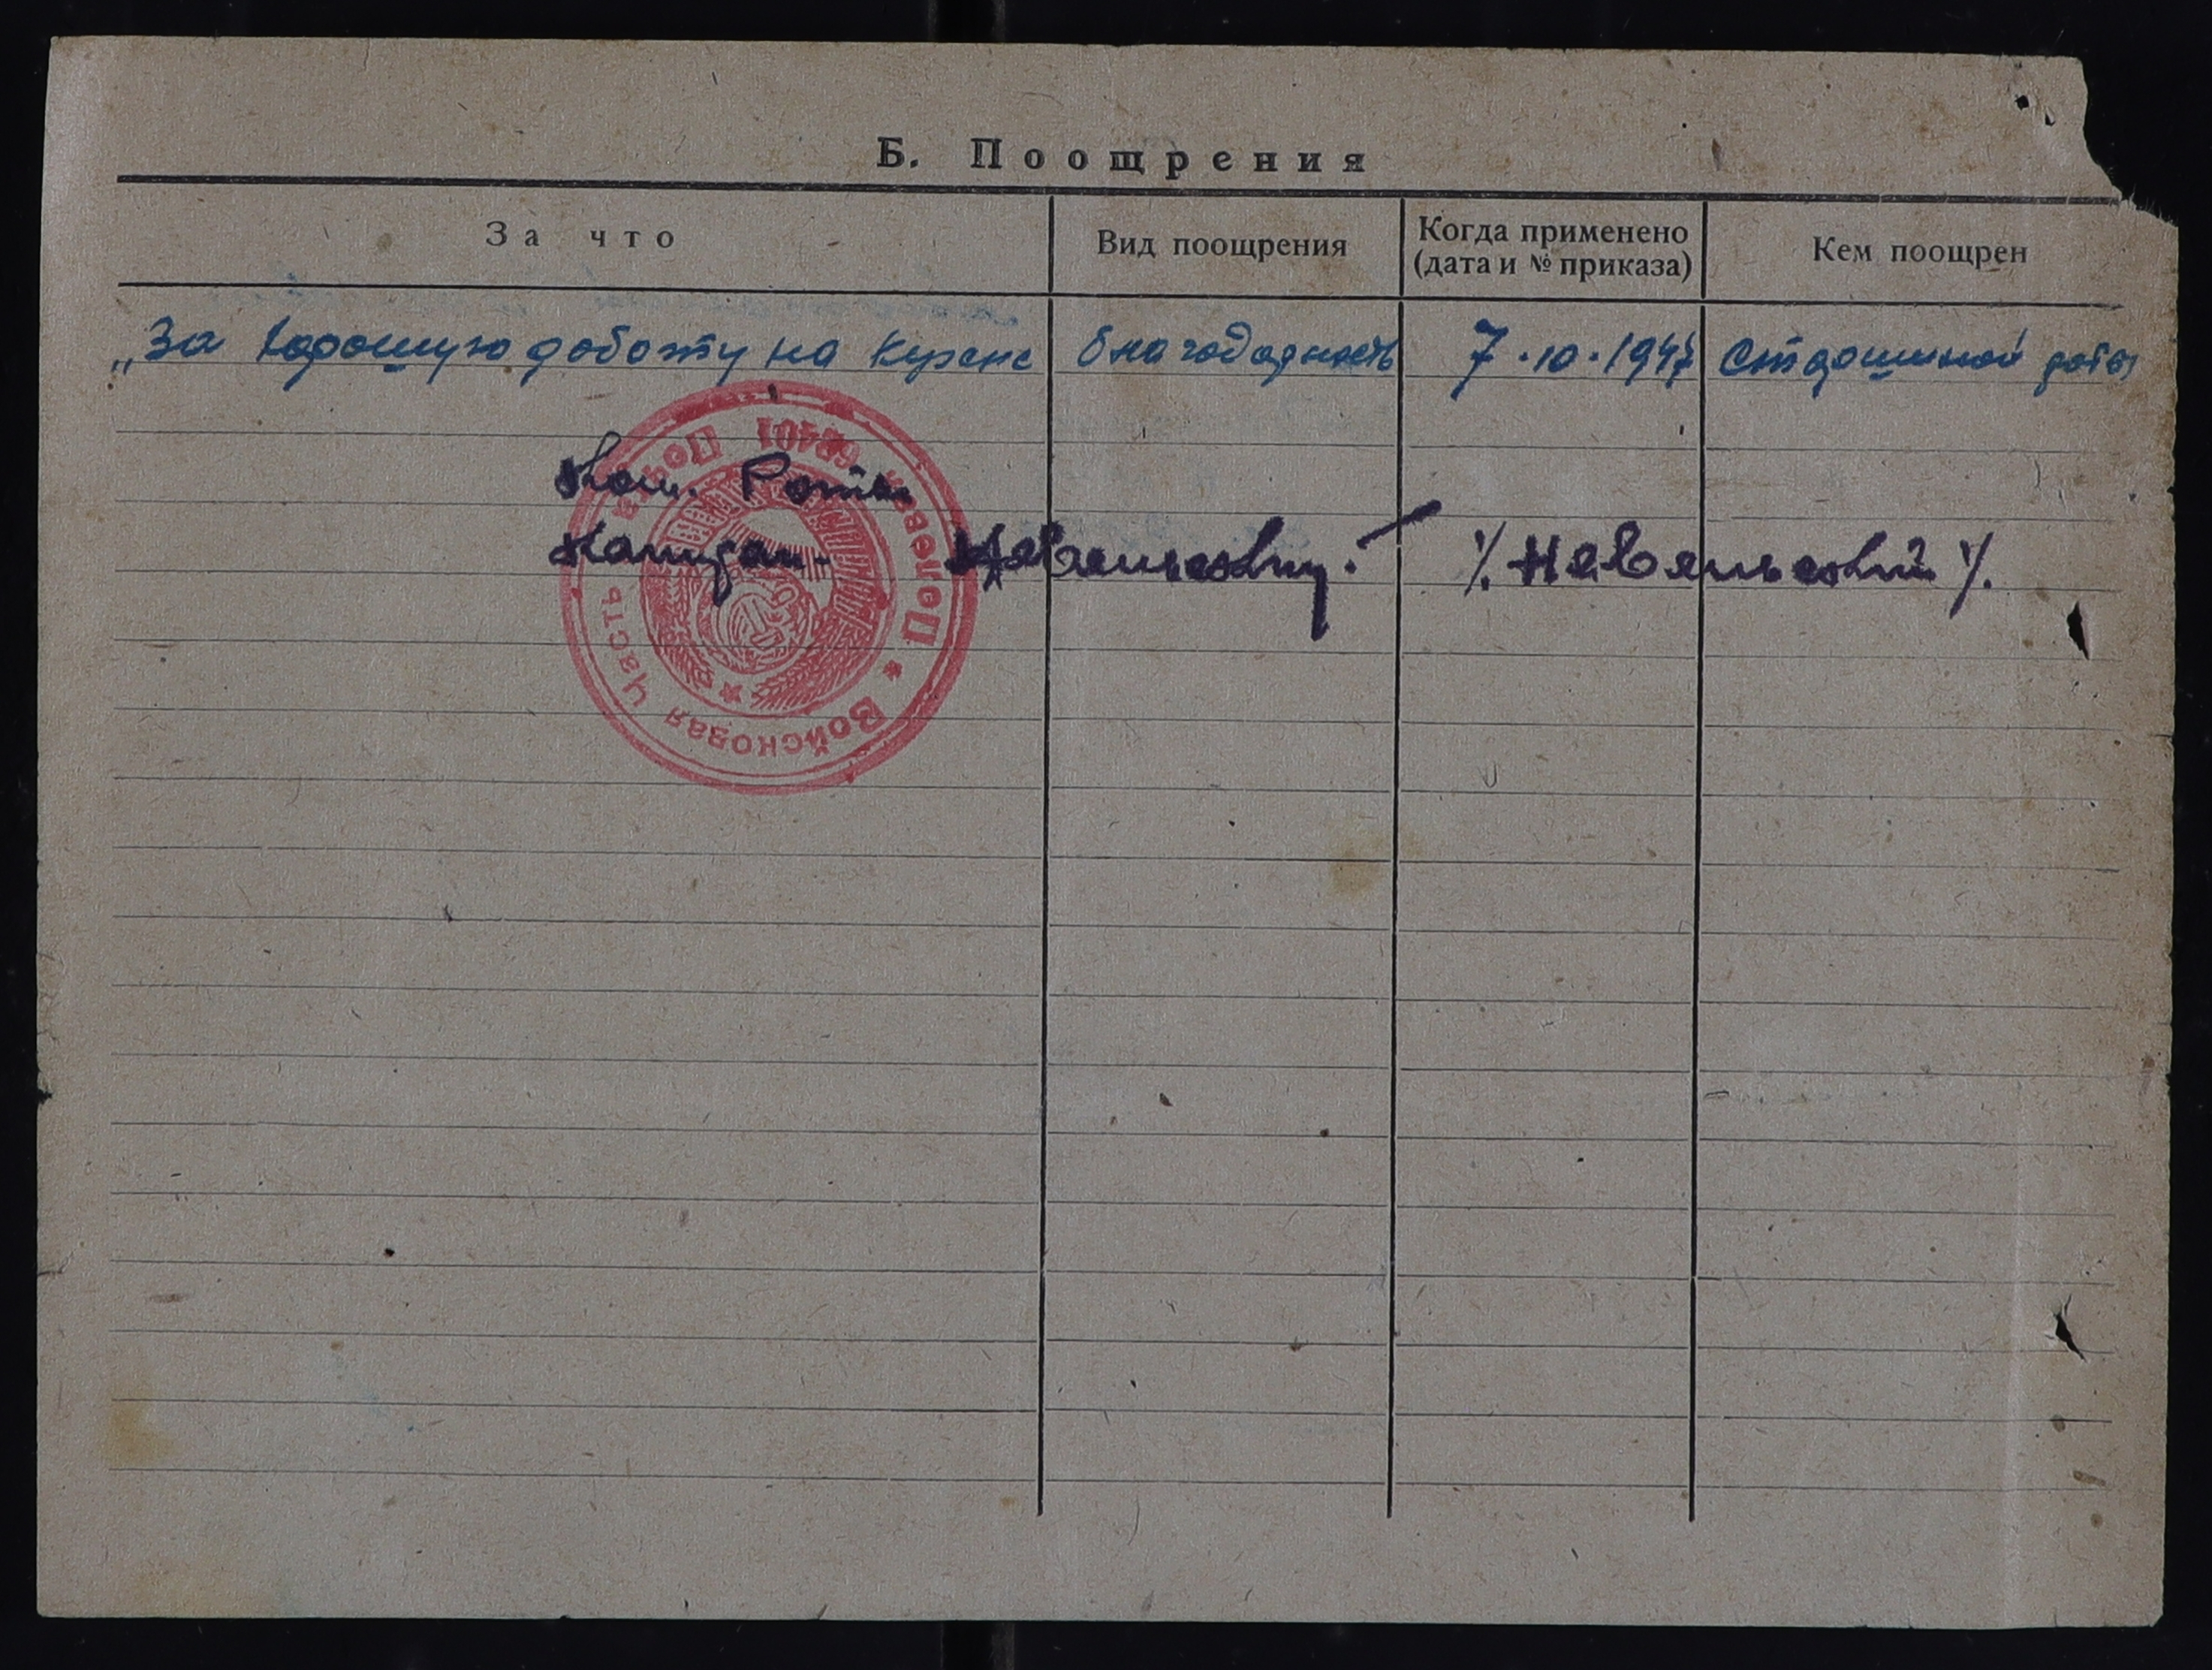 Б. Поощрения
За что
Вид поощрения
Когда применено
(дата и № приказа)
Кем поощрен
„За хорошую роботу на Кухне
благодарность
7.10.1947
Старшиной роты
Ком. Роты
Капитан-
/. Невельский /.
Войсковая Часть Полевая Почта